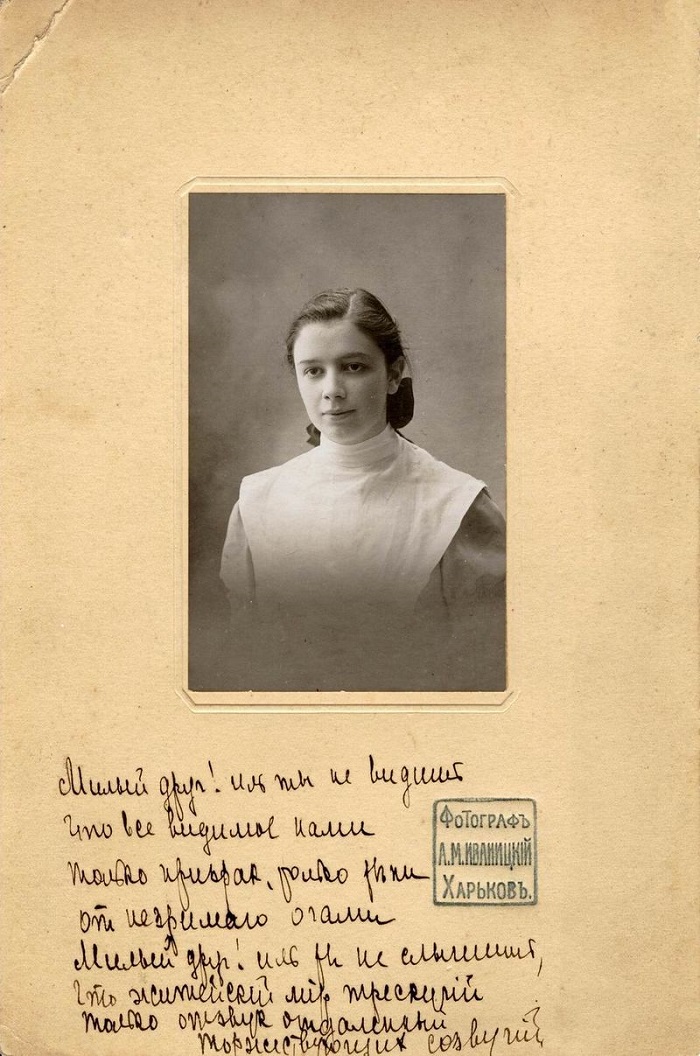 Милый друг! иль ты не видишь
Что все видимое нами
только призрак, только тени
от незримаго очами
Милый друг! иль ты не слышишь,
Что житейскій мир трескучій
только отзвук отдаленный
торжествующих созвучий
ФОТОГРАФЪ
А.М.ИВАНИЦКІЙ
ХАРЬКОВЪ.